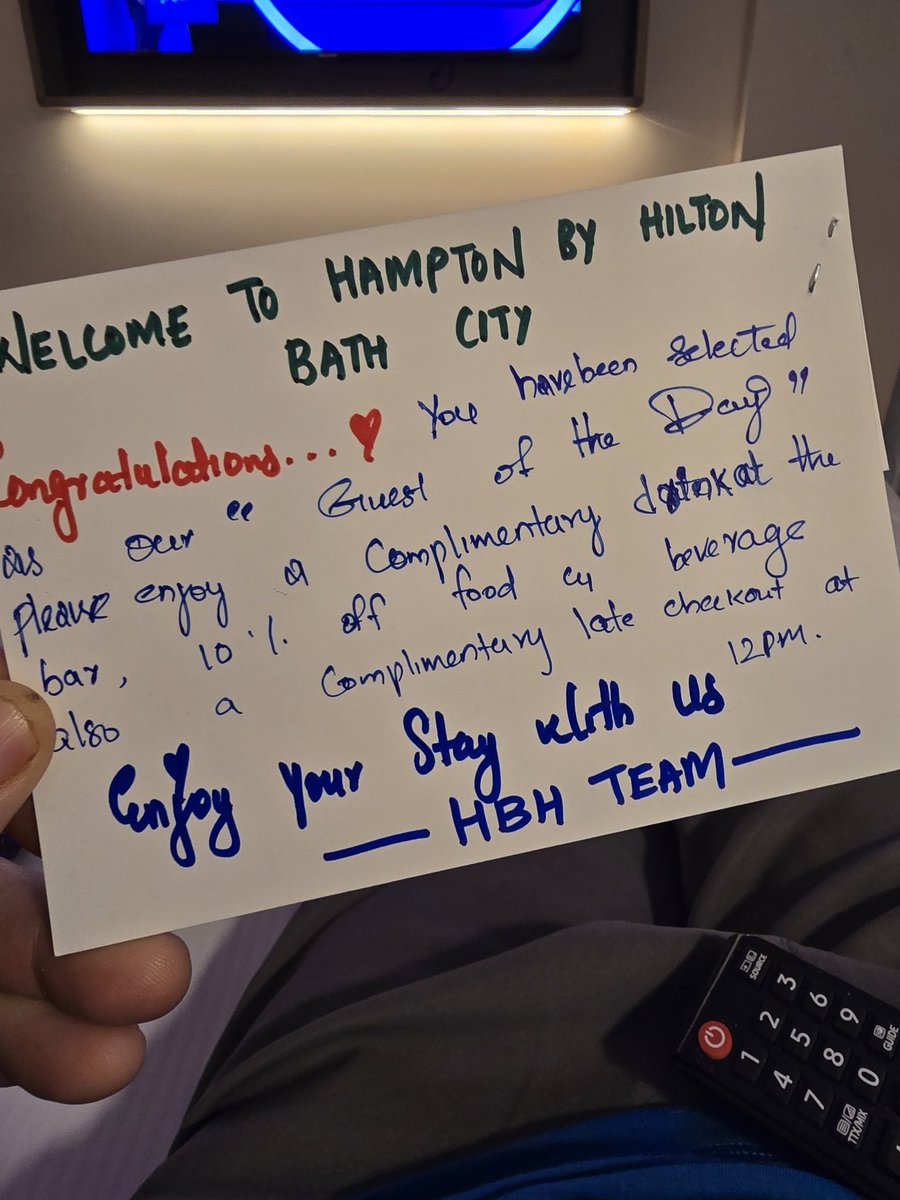 WELCOME TO HAMPTON BY HILTON
BATH CITY
Congratulations...♥ You have been selected
as our “ Guest of the Day”
please enjoy a Complimentary drink at the
bar, 10% off food & beverage
also a Complimentary late checkout at
12pm.
Enjoy Your Stay With Us
— HBH TEAM —
SOURCE
1 2 3
4 5 6
7 8 9
TTX/MIX 0 GUIDE